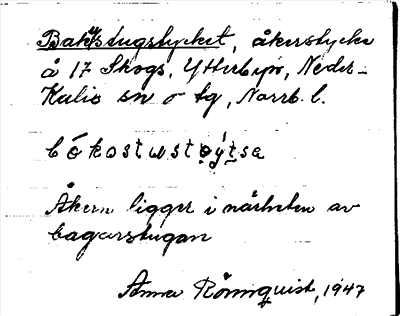 Bakstugstycket, åkerstycke
å 17 Skogs, Ytterbyn, Neder-
Kalix sn o tg, Norrb. l.
bókostustøýtsa
Åkern ligger i närheten av
bagarstugan
Anna Rönnquist, 1947